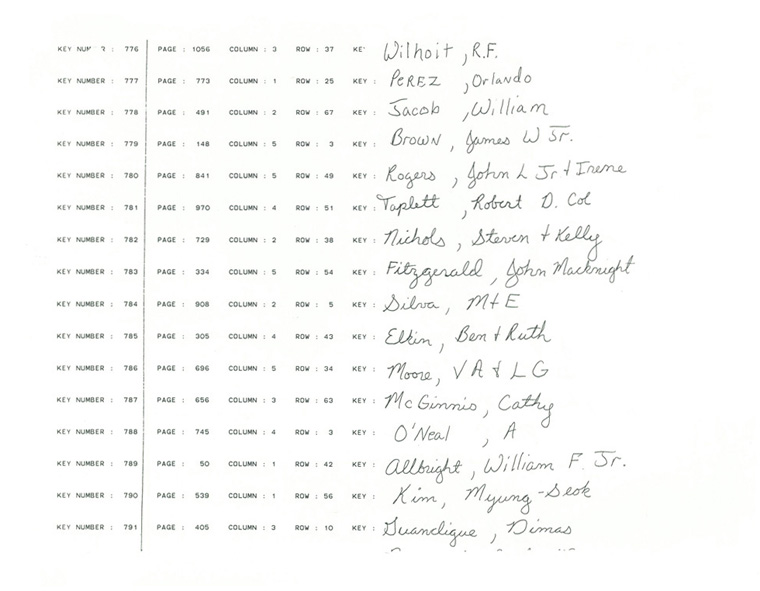 KEY NUMBER : 776 PAGE : 1056 COLUMN : 3 ROW : 37 KE Wilhoit, R.F.
KEY NUMBER : 777 PAGE : 773 COLUMN : 1 ROW : 25 KEY : PEREZ, Orlando
KEY NUMBER : 778 PAGE : 491 COLUMN : 2 ROW : 67 KEY : Jacob, William
KEY NUMBER : 779 PAGE : 148 COLUMN : 5 ROW : 3 KEY : Brown, James W Jr.
KEY NUMBER : 780 PAGE : 841 COLUMN : 5 ROW : 49 KEY : Rogers, John L Jr + Irene
KEY NUMBER : 781 PAGE : 970 COLUMN : 4 ROW : 51 KEY : Taplett, Robert D. Col
KEY NUMBER : 782 PAGE : 729 COLUMN : 2 ROW : 38 KEY : Nichols, Steven + Kelly
KEY NUMBER : 783 PAGE : 334 COLUMN : 5 ROW : 54 KEY : Fitzgerald, John Macknight
KEY NUMBER : 784 PAGE : 908 COLUMN : 2 ROW : 5 KEY : Silva, M + E
KEY NUMBER : 785 PAGE : 305 COLUMN : 4 ROW : 43 KEY : Elkin, Ben + Ruth
KEY NUMBER : 786 PAGE : 696 COLUMN : 5 ROW : 34 KEY : Moore, V A + L G
KEY NUMBER : 787 PAGE : 656 COLUMN : 3 ROW : 63 KEY : McGinnis, Cathy
KEY NUMBER : 788 PAGE : 745 COLUMN : 4 ROW : 3 KEY : O'Neal, A
KEY NUMBER : 789 PAGE : 50 COLUMN : 1 ROW : 42 KEY : Allbright, William F. Jr.
KEY NUMBER : 790 PAGE : 539 COLUMN : 1 ROW : 56 KEY : Kim, Myung-Seok
KEY NUMBER : 791 PAGE : 405 COLUMN : 3 ROW : 10 KEY : Guanclique, Dimas